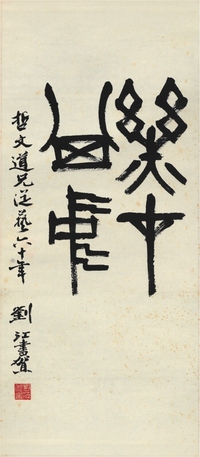 樂在
其中
哲文道兄從藝六十年
劉江書賀